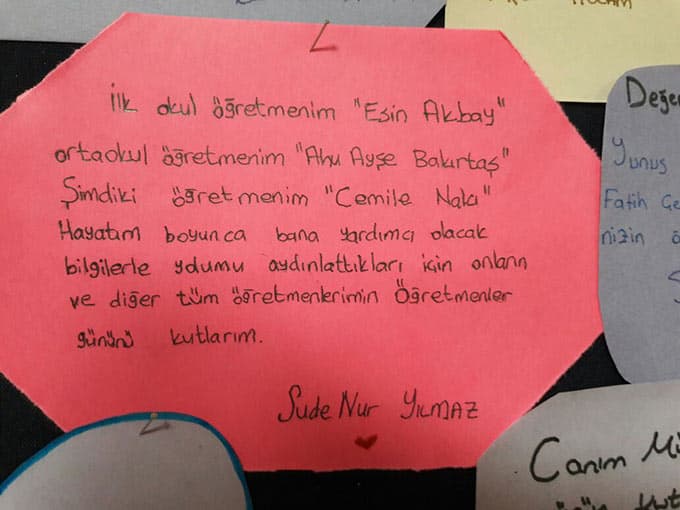 İlk okul öğretmenim "Esin Akbay"
ortaokul öğretmenim "Ahu Ayşe Bakırtaş"
Şimdiki öğretmenim "Cemile Nakı"
Hayatım boyunca bana yardımcı olacak
bilgilerle yolumu aydınlattıkları için onların
ve diğer tüm öğretmenlerimin Öğretmenler
gününü kutlarım.
Sude Nur YILMAZ
Değe
Yunus
Fatih Ge
nizin ö
Canım Mü